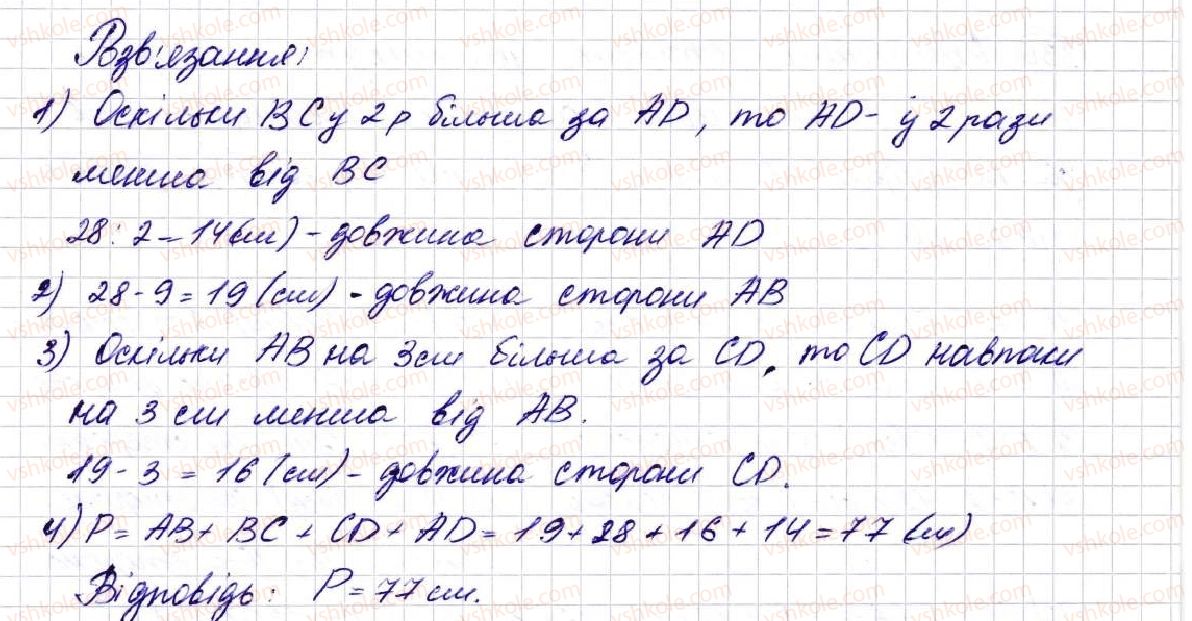 Розв'язання:
1) Оскільки BC у 2 р більша за AD, то AD - у 2 рази
менша від BC
28 : 2 = 14 (см) - довжина сторони AD
2) 28 - 9 = 19 (см) - довжина сторони AB
3) Оскільки AB на 3 см більша за CD, то CD навпаки
на 3 см менша від AB.
19 - 3 = 16 (см) - довжина сторони CD.
4) P = AB + BC + CD + AD = 19 + 28 + 16 + 14 = 77 (см)
Відповідь: P = 77 см.
vshkole.com